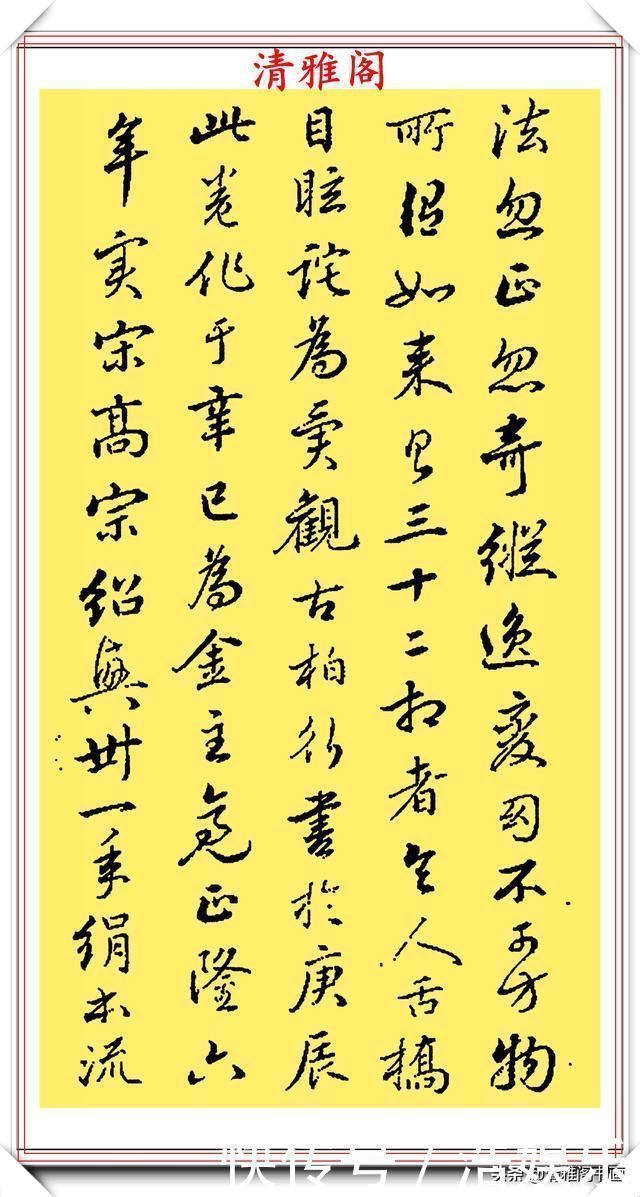 清雅阁
法忽正忽奇縱逸變幻不可方物
所謂如来具三十二相者令人舌撟
目眩詫為異觀古柏行書於庚辰
此卷作于辛巳為金主亮正隆六
年実宋髙宗紹興卅一年絹本流
头条@清雅阁书画